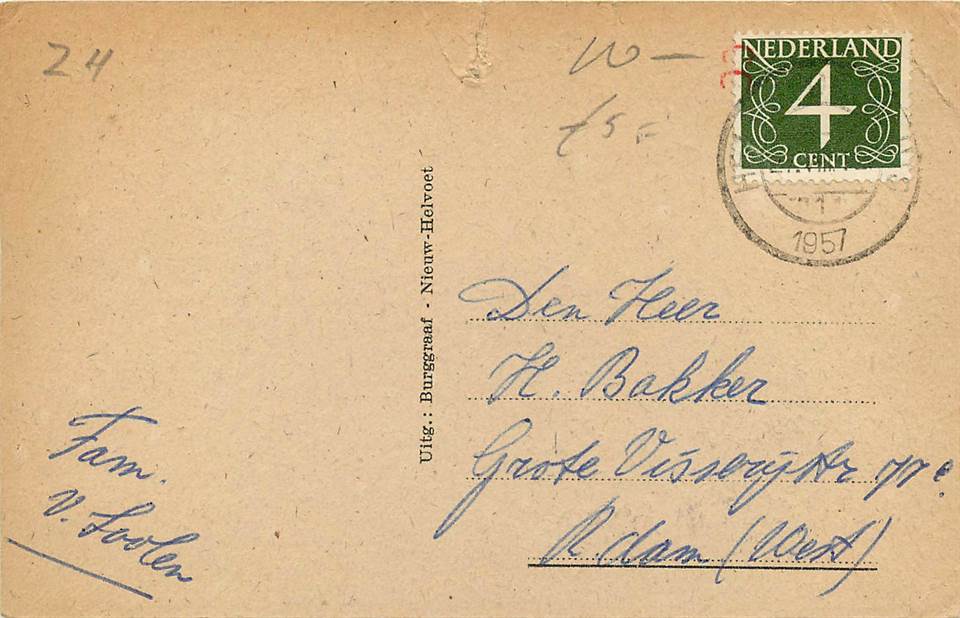 Z4
NEDERLAND
4
CENT
1957
Uitg.: Burggraaf - Nieuw-Helvoet
Den Heer
H. Bakker
Grote Visserijstr
R.dam (West)
Fam.
v. Loolen